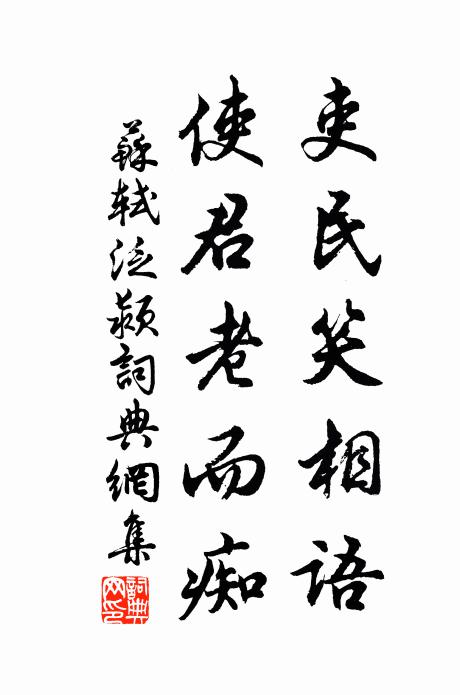 吏民笑相語
使君老而痴
蘇軾泛潁詞典網集
詞典
网印